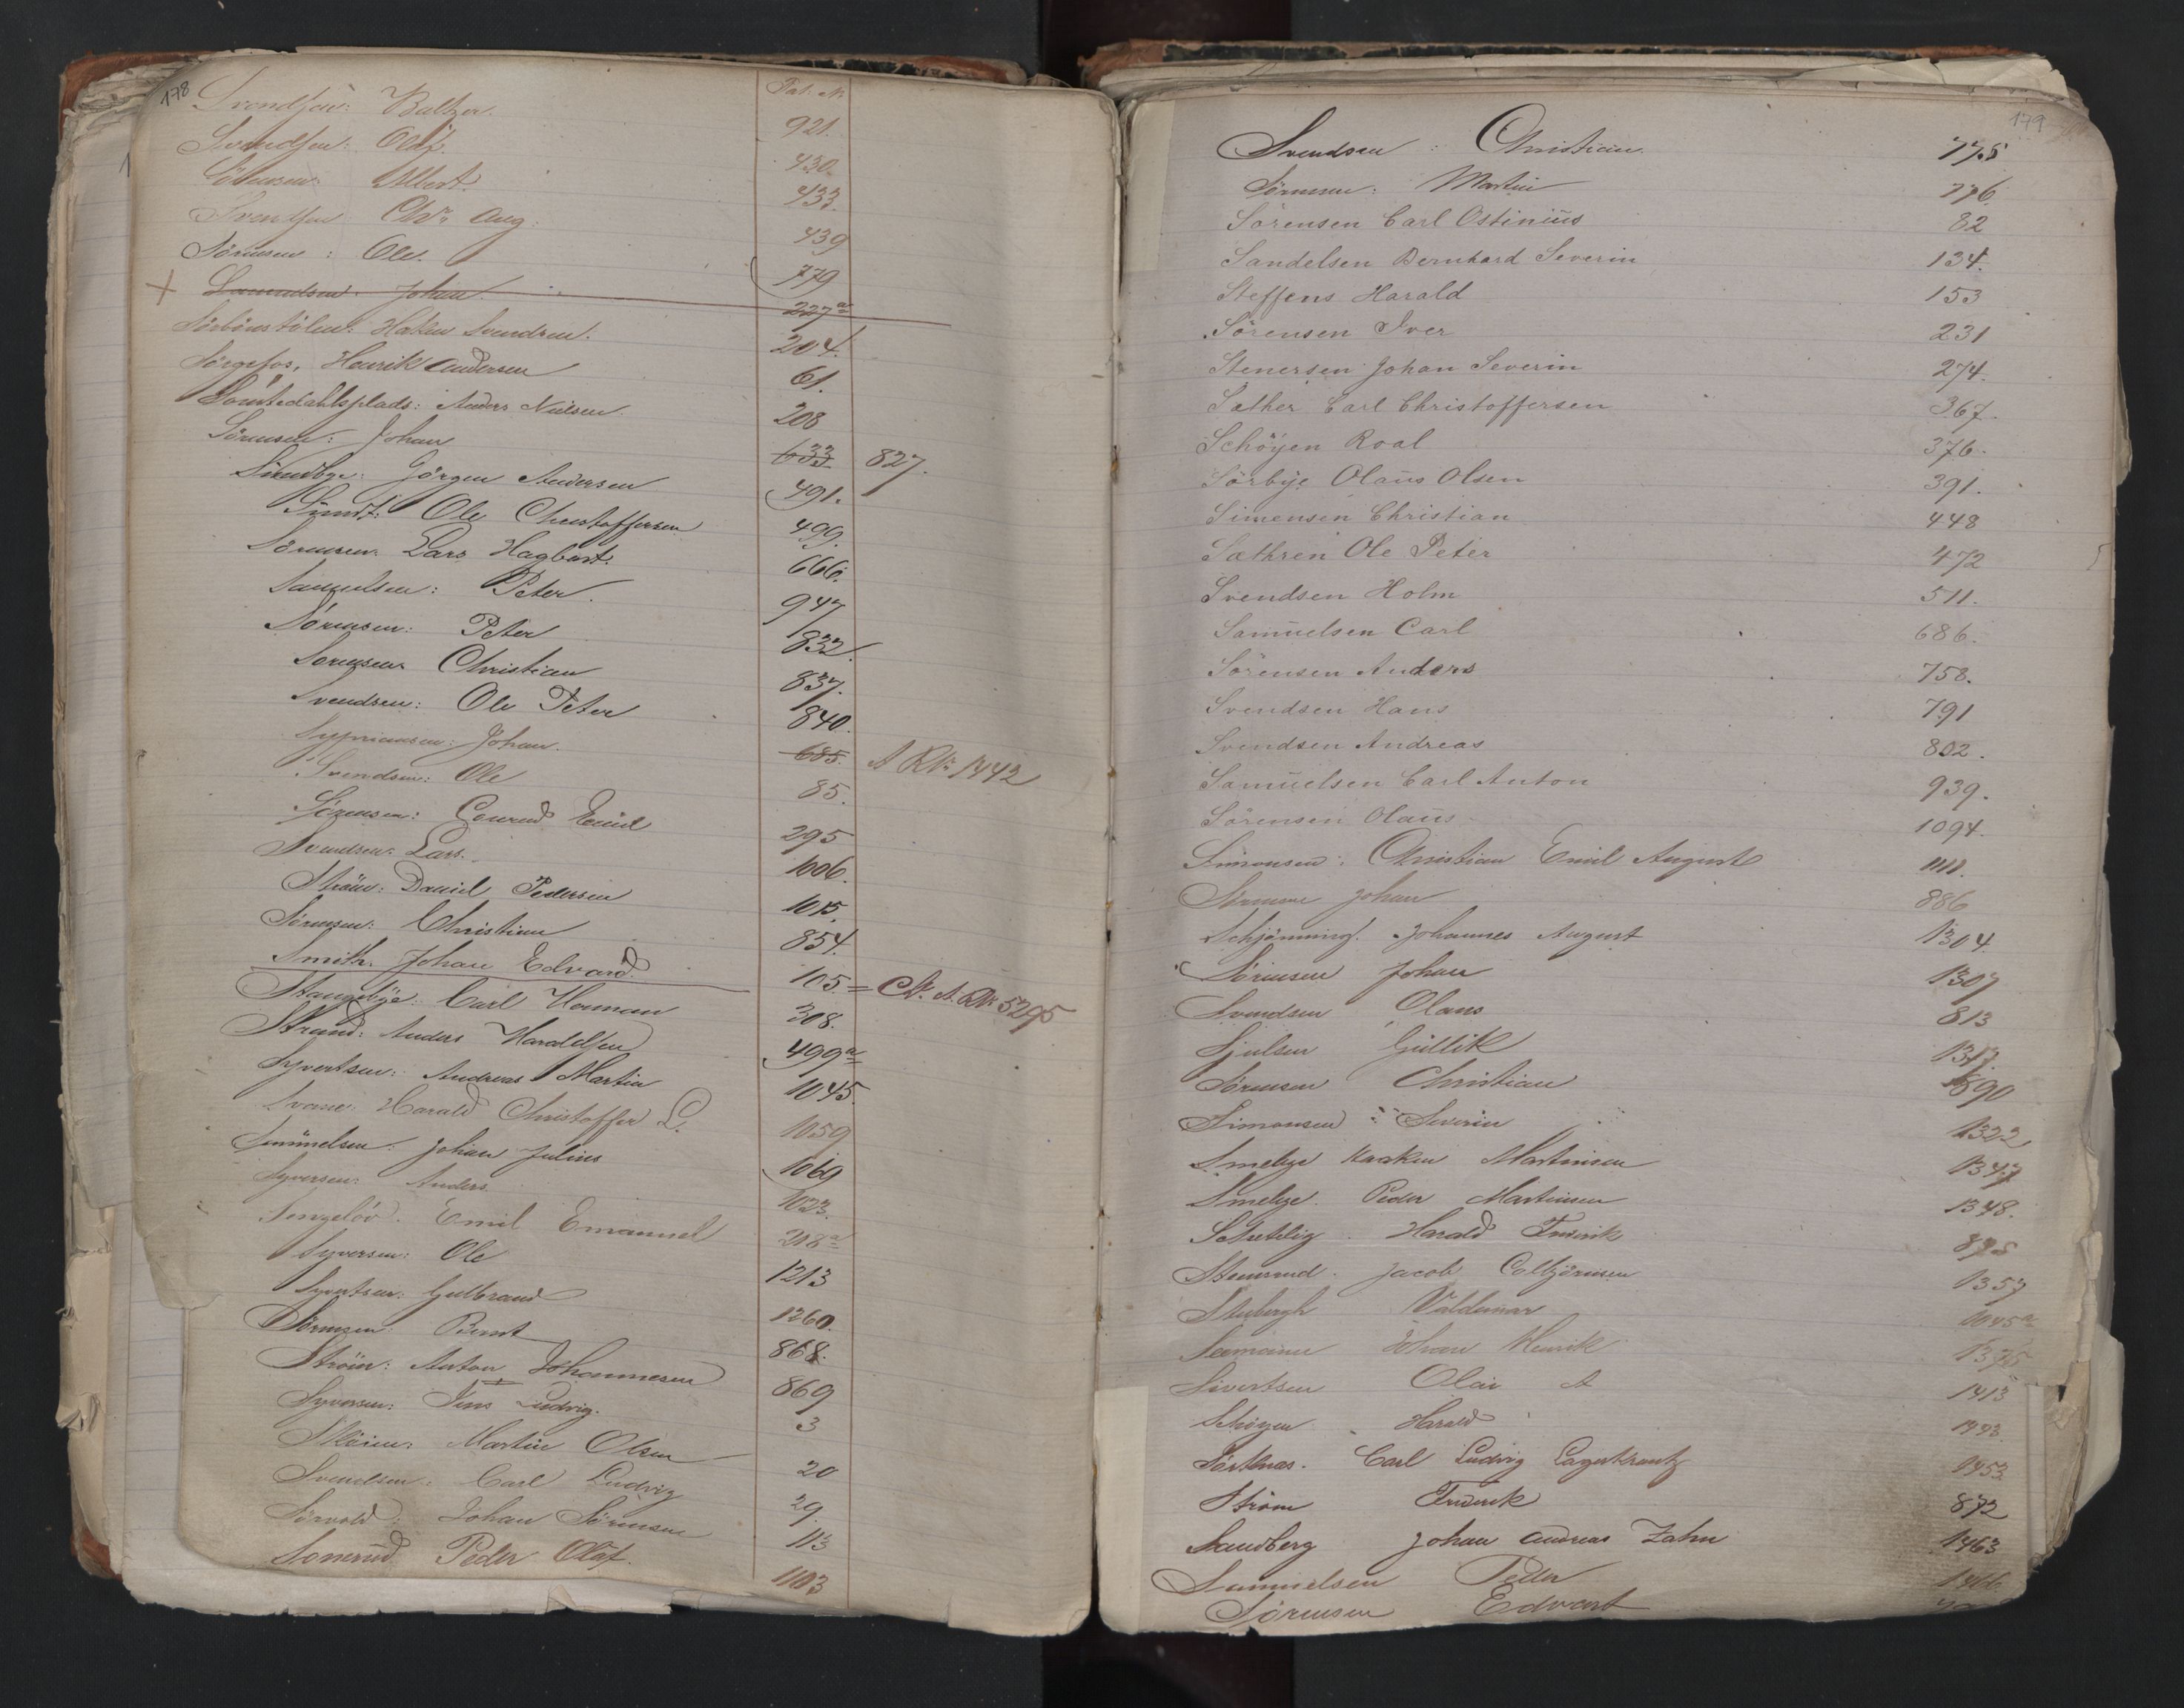 178
Svendsen: Baltzer. 921.
Svendsen: Oluf. 430.
Sörensen: Albert. 433.
Svendsen Chr. Aug. 439
Sörensen: Ole. 779
+ Johan. 227a
Hallen Svendsen. 204.
Henrik Andersen 61.
Anders Nielsen. 208
Sörensen: Johan 633 827.
Sundbye: Jörgen Andersen 491.
Sundt: Ole Christoffersen 499.
Sörensen: Lars Hagbart. 666.
Samuelsen: Peter. 947
Sörensen: Peter 832.
Sörensen Christian 837.
Svendsen: Ole Peter 840.
Johan. 685. A R№ 1442
Svendsen: Ole 85.
Sörensen: Conrad Emil 295
Svendsen: Lars. 1006.
Ström: Daniel Pedersen 1015.
Sörensen: Christian 854.
Smith. Johan Edvard. 105. = A. R№ 5295
Stangebye: Carl Herman 308.
Strand: Anders Haraldsen 499a
Syvertsen: Andreas Martin 1045.
Svane: Harald Christoffer L. 1059
Samuelsen: Johan Julius 1069
Syversen: Anders 1023.
Sengelöv. Emil Emanuel 208a
Syversen: Ole 1213
Syvertsen: Gulbrand 1260.
Sörensen: Bernt 868.
Ström: Anton Johannesen 869
Syversen: Jens Ludvig. 3
Martin Olsen 20
Svendsen: Carl Ludvig 29.
Sörvold: Johan Sörensen 113
Sonerud Peder Olaf. 1103
179
Svendsen: Christian. 775
Sörensen: Martin 776.
Sörensen Carl Ostinius 82
Sandelsen Bernhard Severin 134.
Steffens Harald 153
Sörensen Iver 231
Stenersen Johan Severin 274.
Sæther Carl Christoffersen 367.
Schöyen Roal 376.
Sörbye Olaus Olsen 391.
Simensen Christian 448
Sæthren Ole Peter 472
Svendsen Holm 511.
Samuelsen Carl 686.
Sörensen Anders 758.
Svendsen Hans 791
Svendsen Andreas 802.
Samuelsen Carl Anton 939.
Sörensen Olaus 1094.
Simonsen: Christian Emil August 1111.
Johan 886
Schjönning. Johannes August 1304
Sörensen Johan 1307
Svendsen Olaus 813
Gullik 1317.
Sörensen Christian 890
Simonsen Severin 1322
Smebye Haaken Martinsen 1347
Smebye. Peder Martinsen 1348.
Schetelig. Harald Fredrik
Stensrud. Jacob Colbjörnsen 1357
Stubergh Valdemar 1045a
Seemann Johan Henrik 1375
Sivertsen Olai A 1413
Schöyen Harald
Sörknæs. Carl Ludvig Lagerkrantz 1453
Ström Fredrik 872
Sandberg Johan Andreas Zahn 1463
Samuelsen Peder 1466
Sörensen Edvart